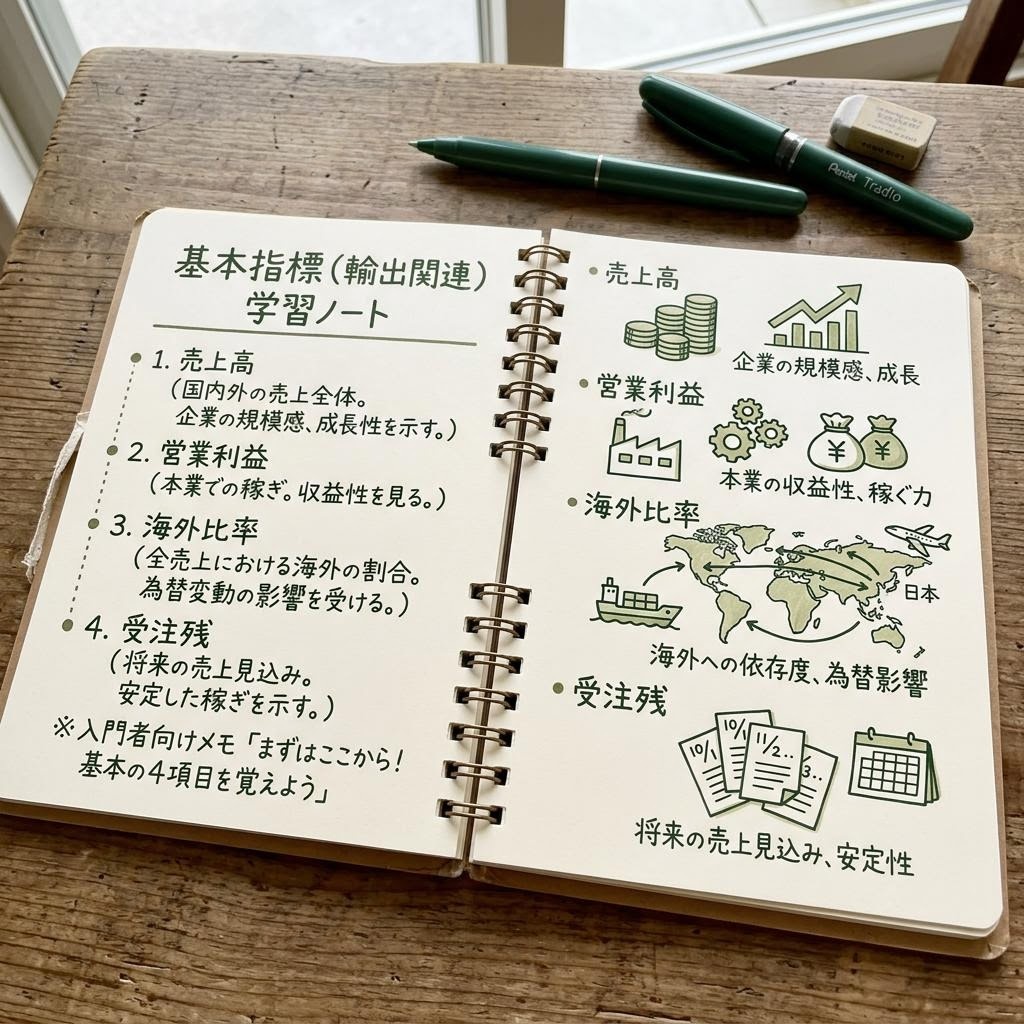 基本指標(輸出関連)
学習ノート
1. 売上高
(国内外の売上全体。
企業の規模感、成長性を示す。)
2. 営業利益
(本業での稼ぎ。収益性を見る。)
3. 海外比率
(全売上における海外の割合。
為替変動の影響を受ける。)
4. 受注残
(将来の売上見込み。
安定した稼ぎを示す。)
※入門者向けメモ「まずはここから!
基本の4項目を覚えよう」
・売上高
企業の規模感、成長
・営業利益
¥ ¥
本業の収益性、稼ぐ力
・海外比率
日本
海外への依存度、為替影響
・受注残
10/1 10/ 11/2.. 3..
将来の売上見込み、安定性
Pentel Tradio